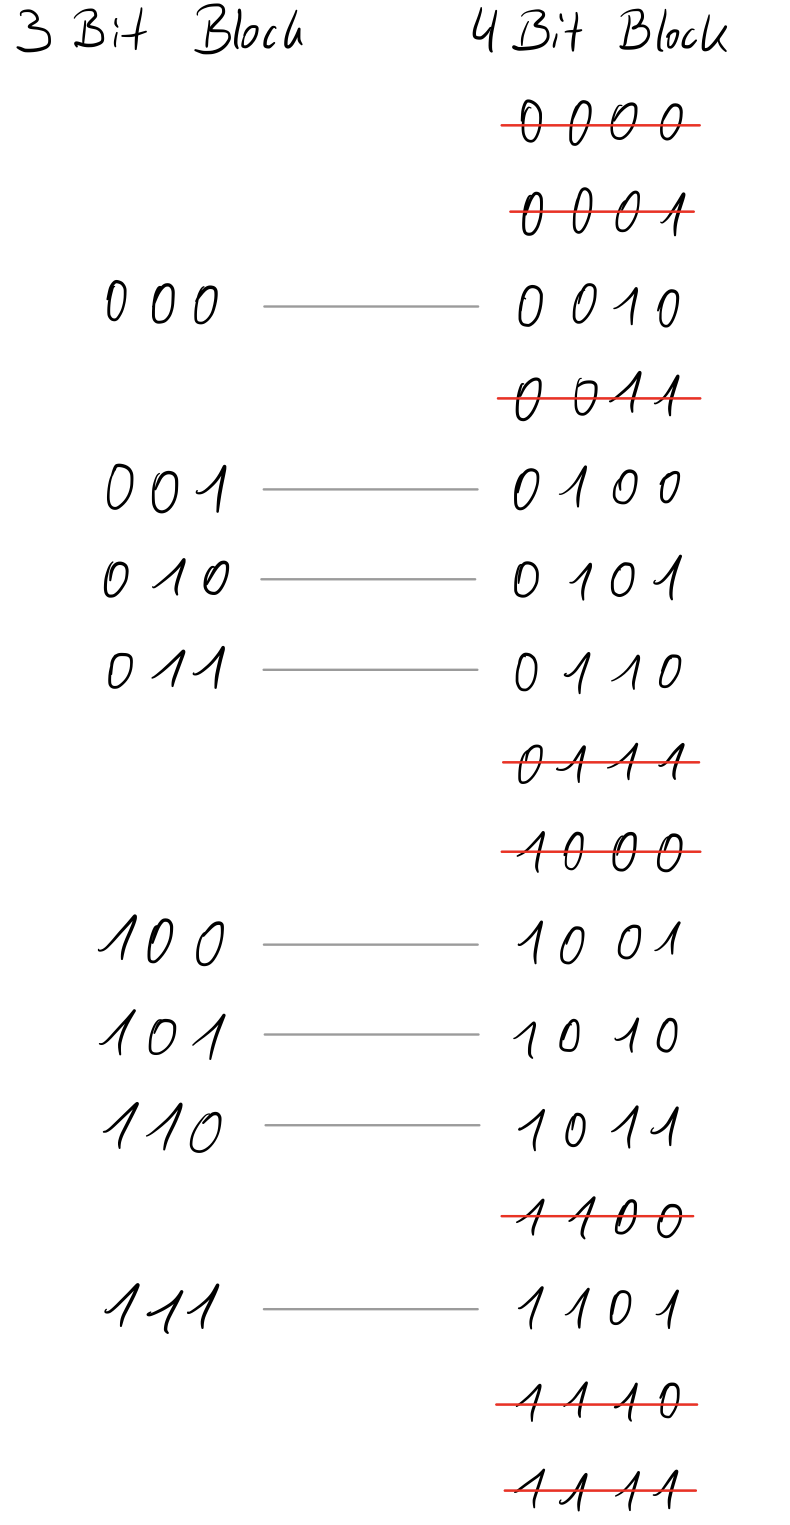 3 Bit Block 4 Bit Block
0000
0001
000 0010
0011
001 0100
010 0101
011 0110
0111
1000
100 1001
101 1010
110 1011
1100
111 1101
1110
1111